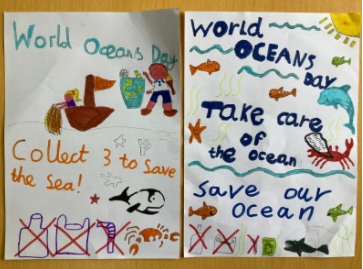 World Oceans Day
Collect 3 to save
the sea!
World
OCEANS
DAY
Take care
of
the ocean
Save our
ocean